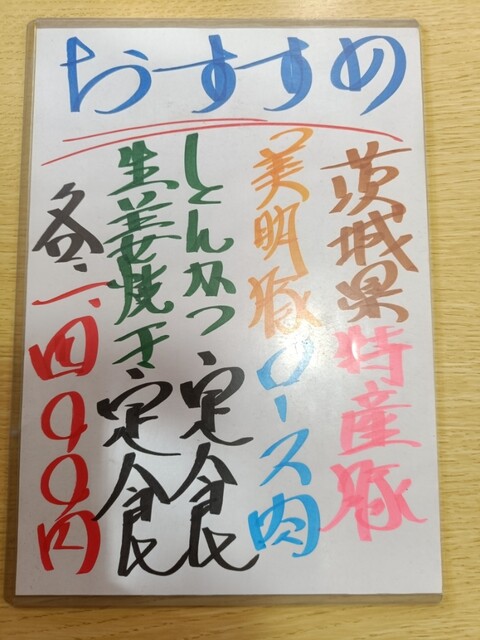 おすすめ
茨城県特産豚
美明豚ロース肉
とんかつ定食
生姜焼き定食
各、一、四〇〇円